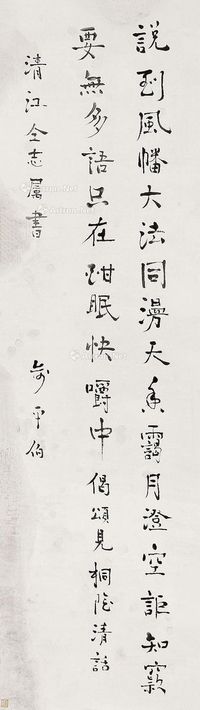 說到風幡大法同漫天香靄月澄空詎知窾
要無多語只在酣眠快嚼中偈頌見桐陰清話
清江仝志屬書
俞平伯